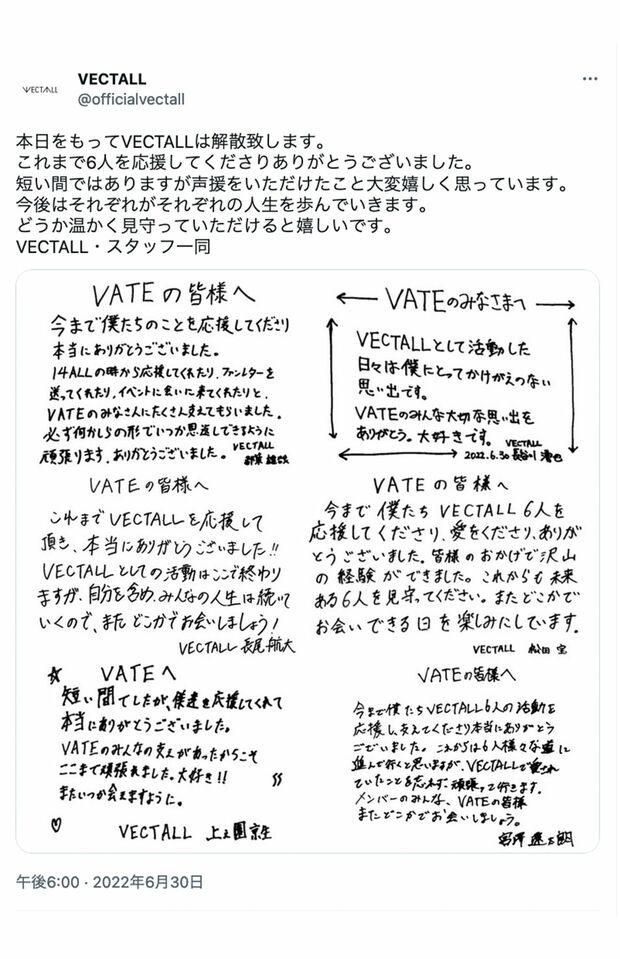 VECTALL
VECTALL
@officialvectall
本日をもってVECTALLは解散致します。
これまで6人を応援してくださりありがとうございました。
短い間ではありますが声援をいただけたこと大変嬉しく思っています。
今後はそれぞれがそれぞれの人生を歩んでいきます。
どうか温かく見守っていただけると嬉しいです。
VECTALL・スタッフ一同
VATEの皆様へ
今まで僕たちのことを応援してくださり
本当にありがとうございました。
14ALLの時から応援してくれたり、ファンレターを
送ってくれたり、イベントに会いに来てくれたりと、
VATEのみなさんにたくさん支えてもらいました。
必ず何かしらの形でいつか恩返しできるように
頑張ります。ありがとうございました。
VECTALL
VATEのみなさまへ
VECTALLとして活動した
日々は僕にとってかけがえのない
思い出です。
VATEのみんな大切な思い出を
ありがとう。大好きです。
VECTALL
2022.6.30 長谷川
VATEの皆様へ
これまでVECTALLを応援して
頂き、本当にありがとうございました!!
VECTALLとしての活動はここで終わり
ますが、自分を含め、みんなの人生は続いて
いくので、またどこかでお会いしましょう!
VECTALL 長尾航大
VATEの皆様へ
今まで僕たちVECTALL 6人を
応援してくださり、愛をくださり、ありが
とうございました。皆様のおかげで沢山
の経験ができました。これからも未来
ある6人を見守ってください。またどこかで
お会いできる日を楽しみにしています。
VECTALL 松田 宝
VATEへ
短い間でしたが、僕達を応援してくれて
本当にありがとうございました。
VATEのみんなの支えがあったからこそ
ここまで頑張れました。大好き!!
またいつか会えますように。
VECTALL 上之園京生
VATEの皆様へ
今まで僕たちVECTALL6人の活動を
応援し、支えてくださり本当にありがとう
ございました。これからは6人様々な道に
進んで行くと思いますが、VECTALLで愛され
ていたことを忘れず、頑張って行きます。
メンバーのみんな、VATEの皆様
またどこかでお会いしましょう。
午後6:00 · 2022年6月30日